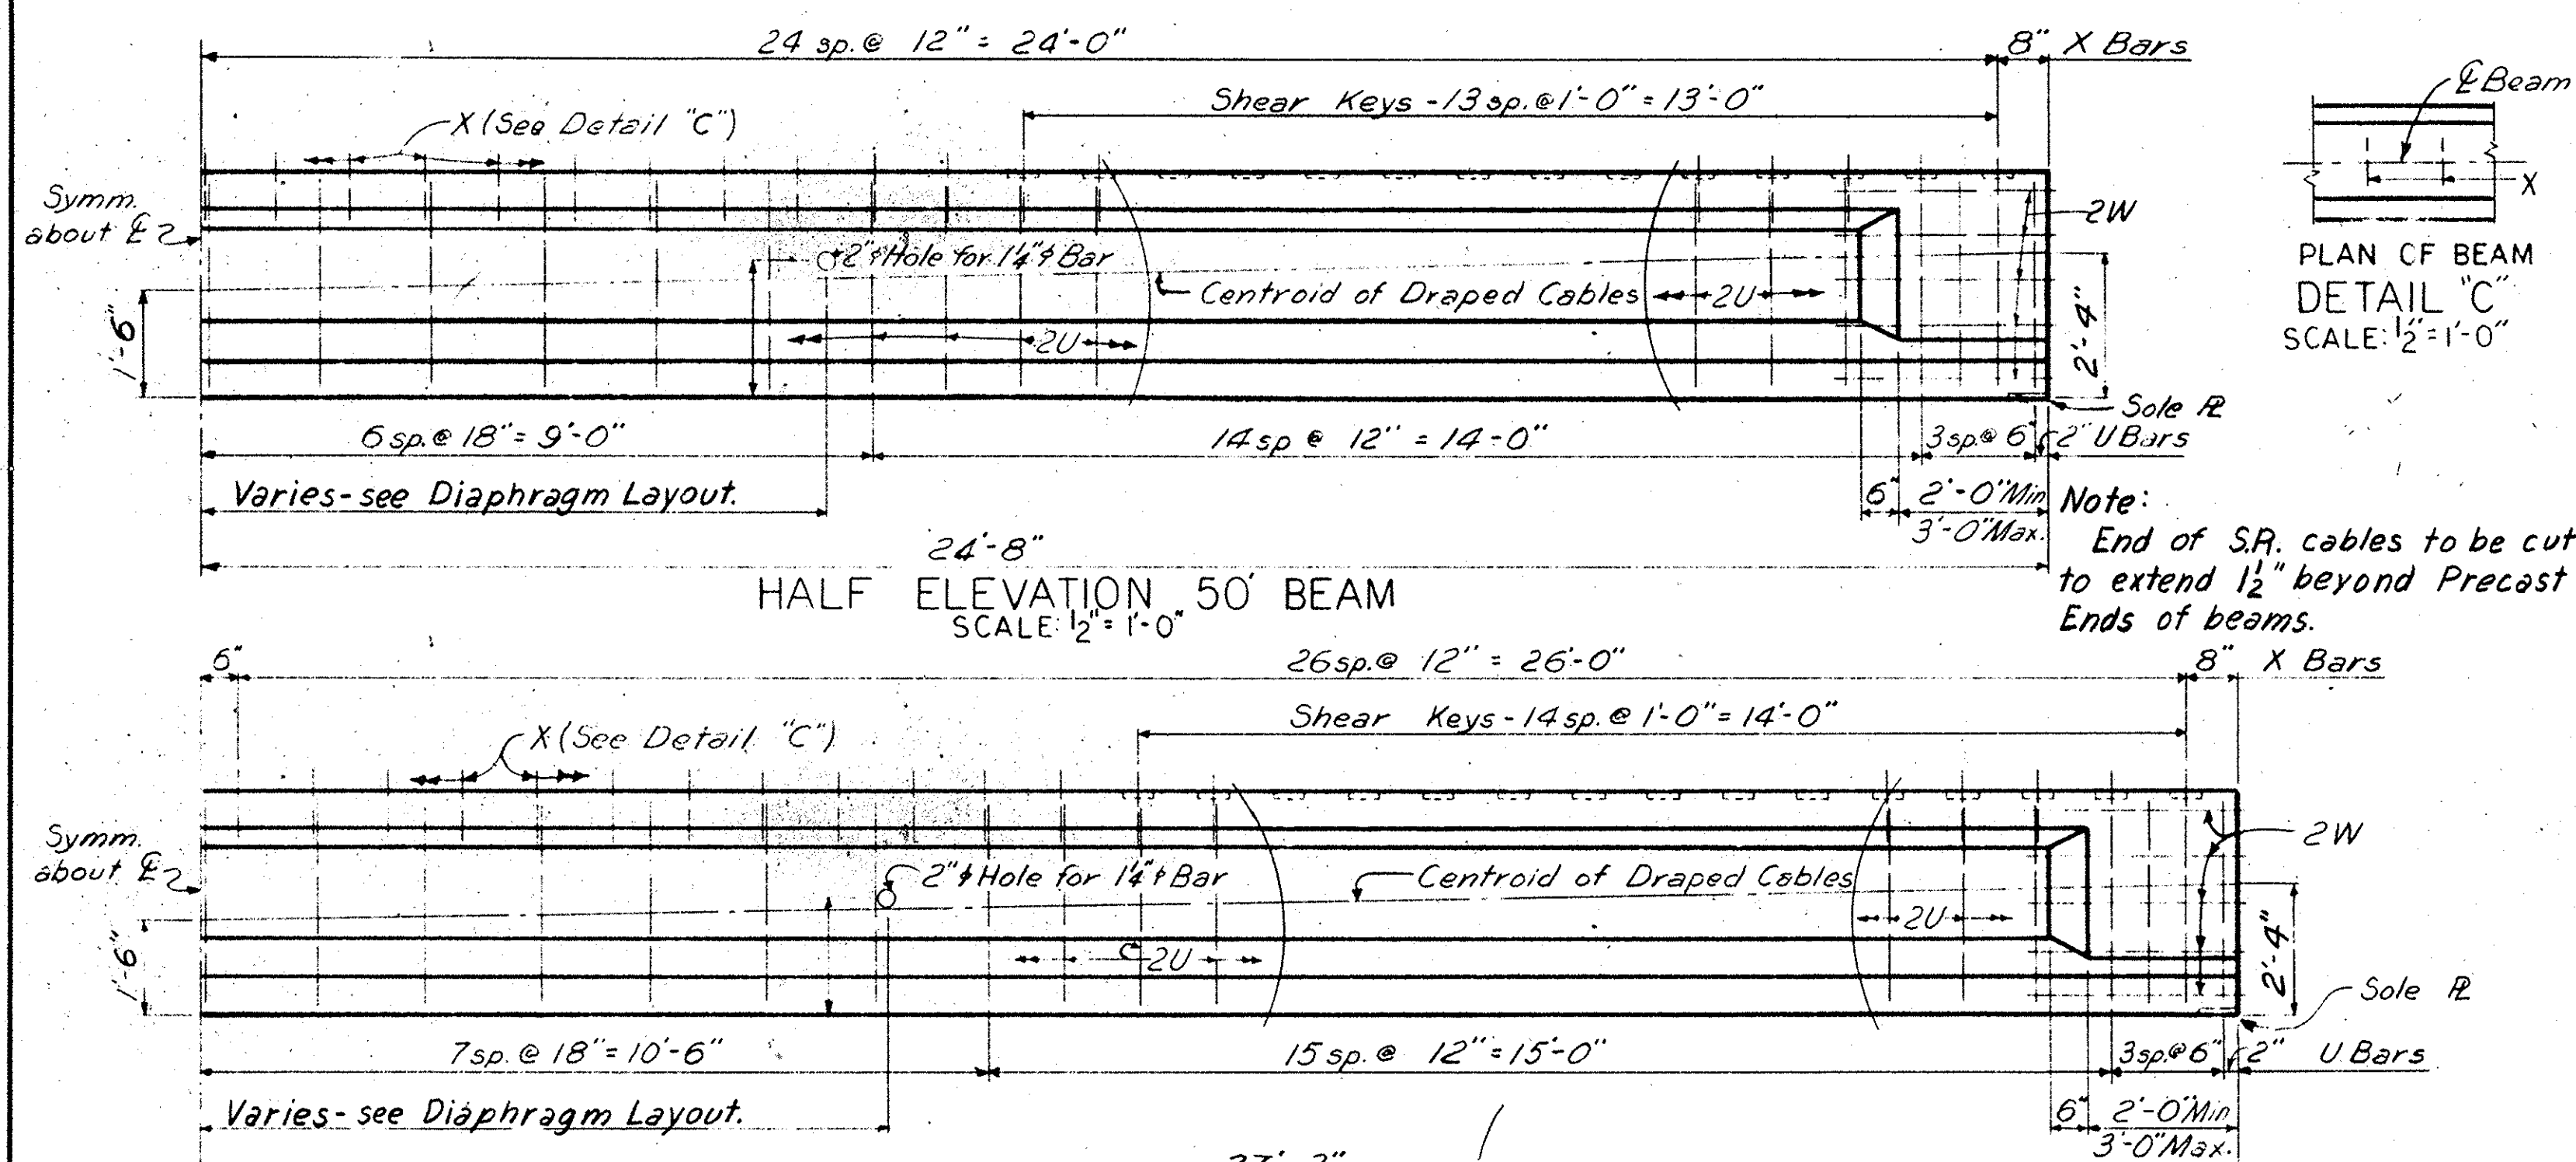 24 sp. @ 12" = 24'-0"
8" X Bars
Shear Keys - 13 sp. @ 1'-0" = 13'-0"
X (See Detail "C")
Symm.
about ℄
2"φ Hole for 1¼"φ Bar
Centroid of Draped Cables
2U
2U
2W
1'-6"
2'-4"
Sole PL
6 sp. @ 18" = 9'-0"
14 sp @ 12" = 14'-0"
3 sp. @ 6"
2" U Bars
Varies - see Diaphragm Layout.
6"
2'-0" Min
3'-0" Max.
24'-8"
HALF ELEVATION 50' BEAM
SCALE: ½" = 1'-0"
℄ Beam
X
PLAN OF BEAM
DETAIL "C"
SCALE: ½" = 1'-0"
Note:
End of S.R. cables to be cut
to extend 1½" beyond Precast
Ends of beams.
6"
26 sp. @ 12" = 26'-0"
8" X Bars
Shear Keys - 14 sp. @ 1'-0" = 14'-0"
X (See Detail "C")
Symm.
about ℄
2"φ Hole for 1¼"φ Bar
Centroid of Draped Cables
2U
2U
2W
1'-6"
2'-4"
Sole PL
7 sp. @ 18" = 10'-6"
15 sp. @ 12" = 15'-0"
3 sp. @ 6"
2" U Bars
Varies - see Diaphragm Layout.
6"
2'-0" Min
3'-0" Max.